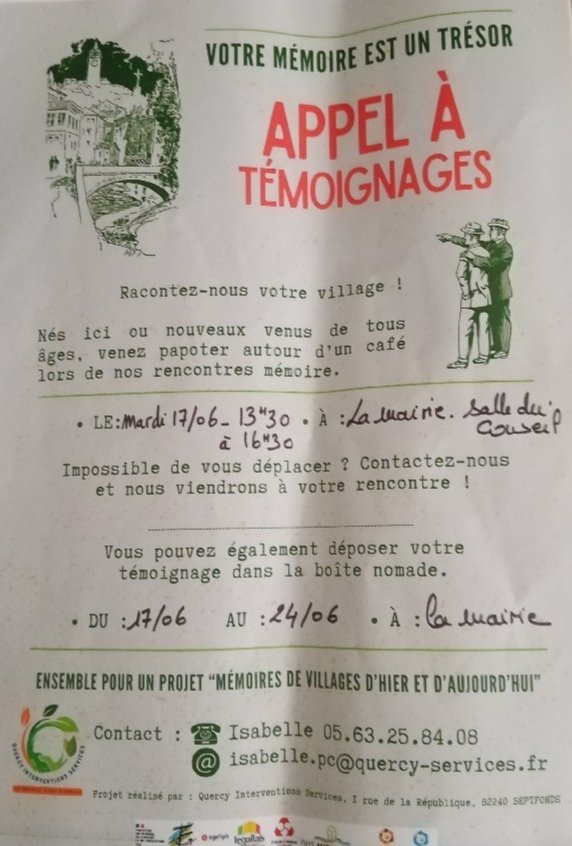 VOTRE MÉMOIRE EST UN TRÉSOR
APPEL À
TÉMOIGNAGES
Racontez-nous votre village !
Nés ici ou nouveaux venus de tous
âges, venez papoter autour d'un café
lors de nos rencontres mémoire.
• LE : Mardi 17/06 - 13H30 • À : La Mairie. Salle du
à 16H30 Conseil
Impossible de vous déplacer ? Contactez-nous
et nous viendrons à votre rencontre !
Vous pouvez également déposer votre
témoignage dans la boîte nomade.
• DU : 17/06 AU : 24/06 • À : la mairie
ENSEMBLE POUR UN PROJET "MÉMOIRES DE VILLAGES D'HIER ET D'AUJOURD'HUI"
QUERCY INTERVENTIONS SERVICES
Contact : Isabelle 05.63.25.84.08
@ isabelle.pc@quercy-services.fr
Projet réalisé par : Quercy Interventions Services, 1 rue de la République, 82240 SEPTFONDS
legallais